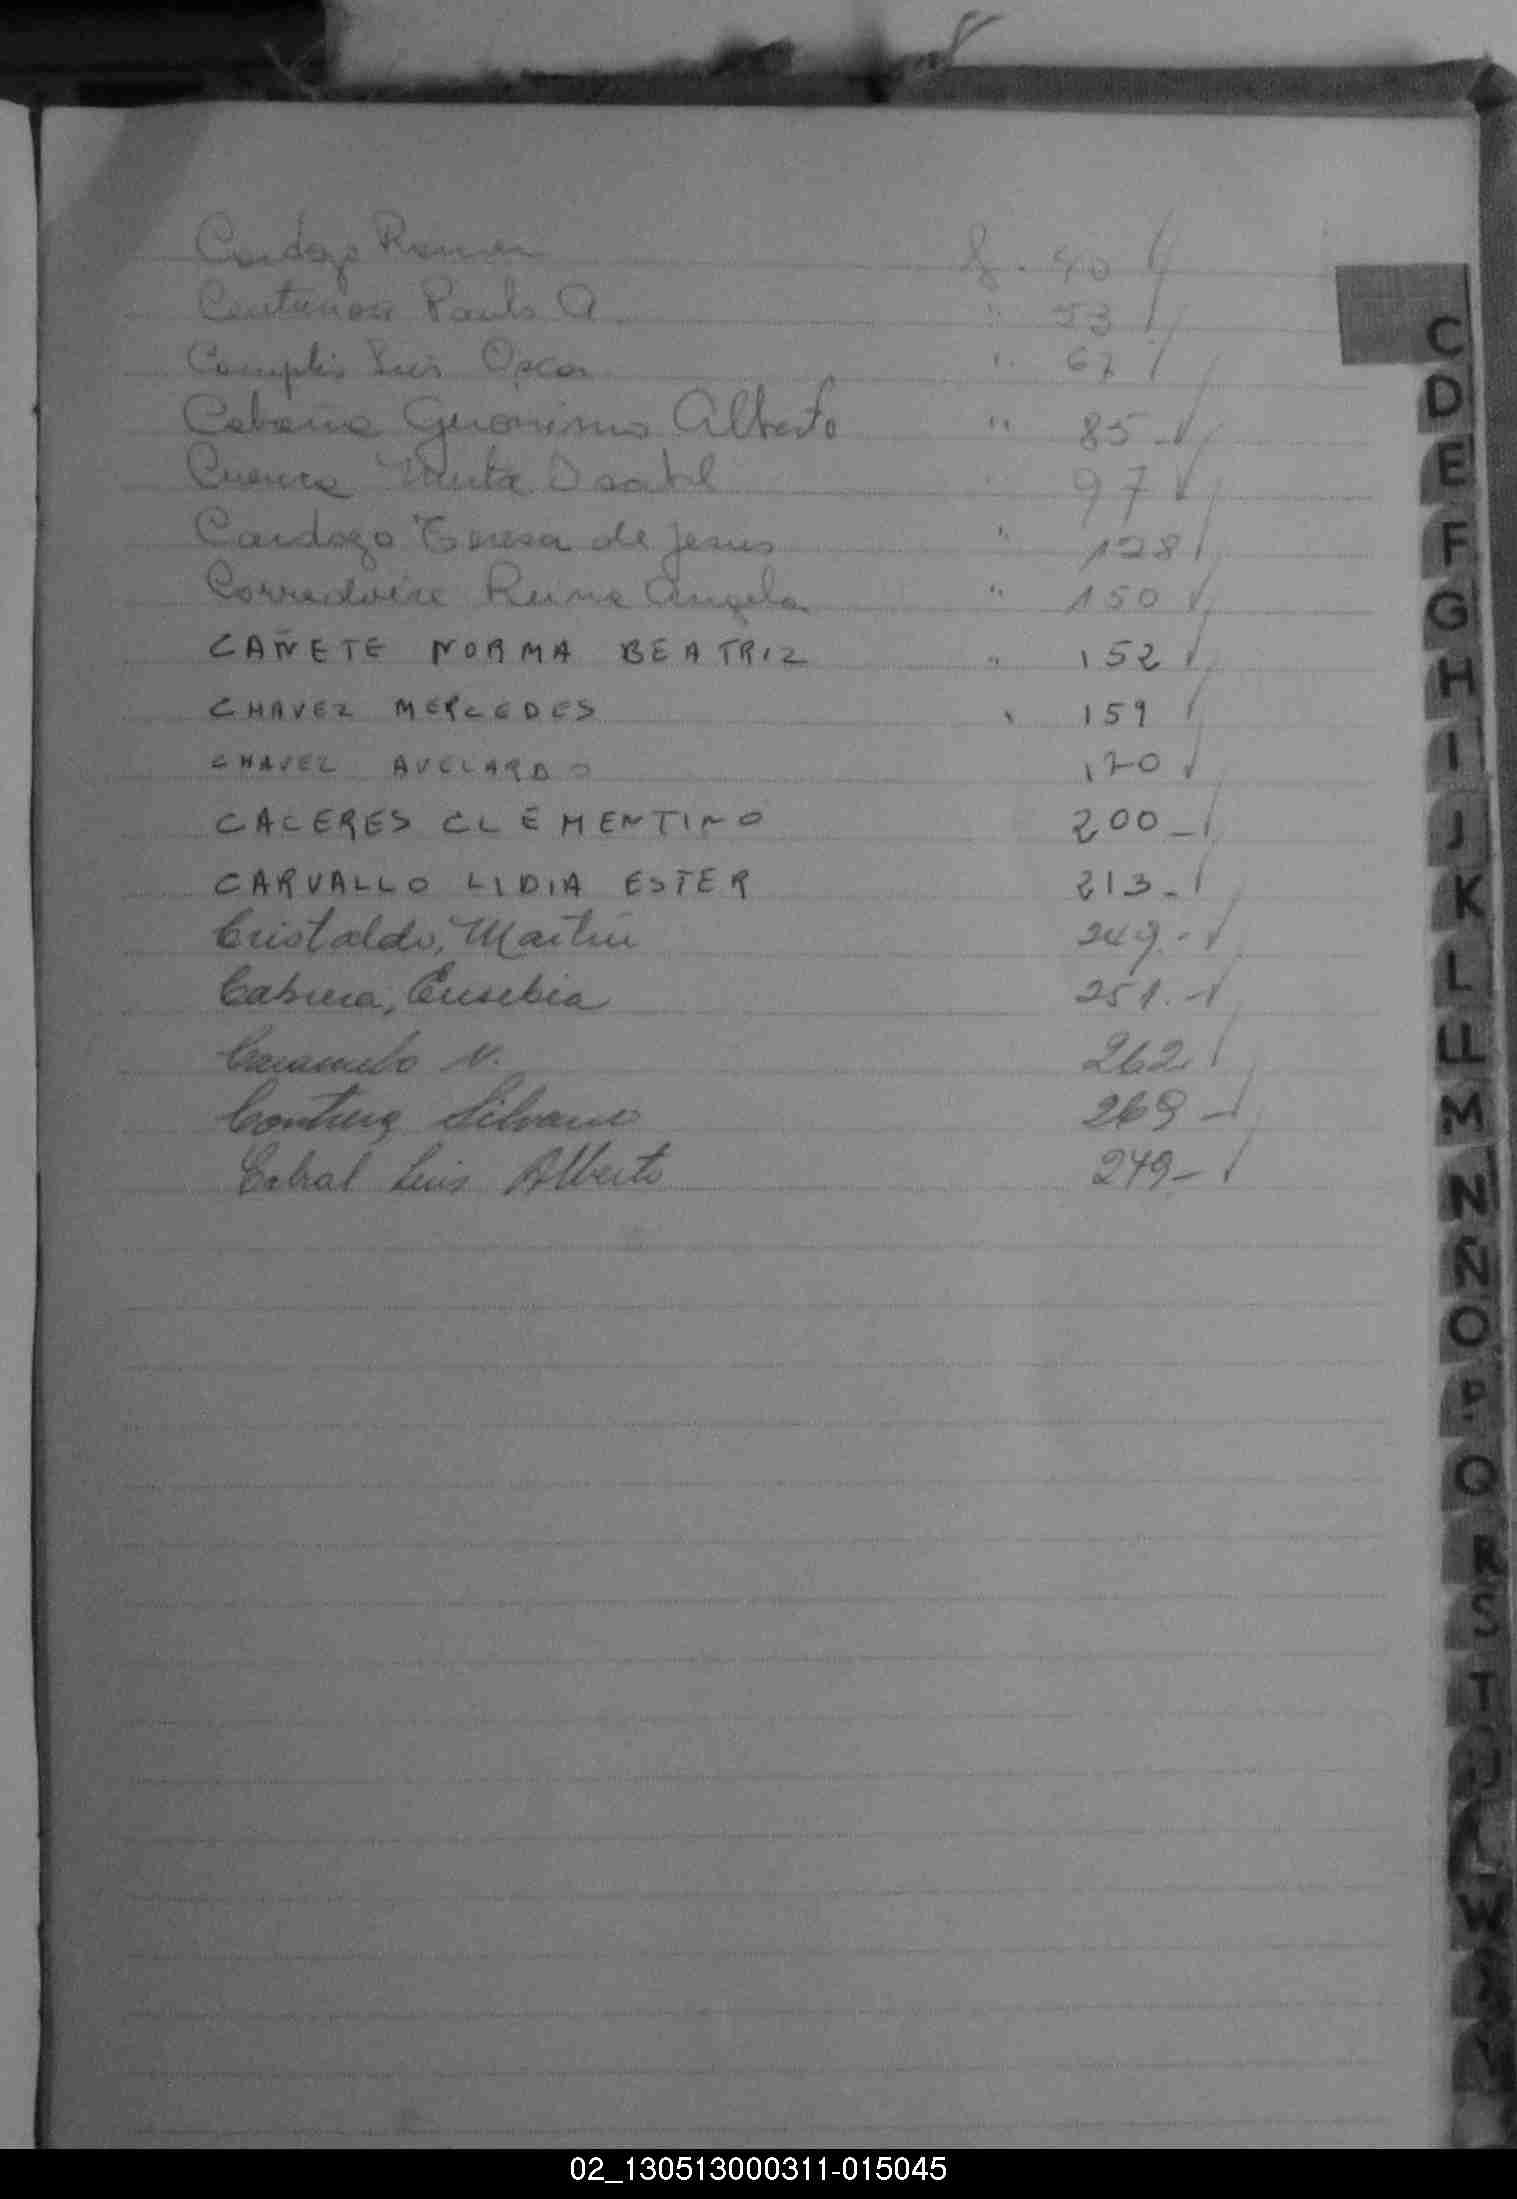 Cardozo Ramon f. 40
Centurion Paulo A. " 53
Luis Oscar " 67
Cabaña Geronimo Alberto " 85
Cuenca Mirta Isabel " 97
Cardozo Teresa de Jesus " 128
Corredoira Reina Angela " 150
CAÑETE NORMA BEATRIZ " 152
CHAVEZ MERCEDES " 159
CHAVEZ AVELARDO 170
CACERES CLEMENTINO 200
CARVALLO LIDIA ESTER 213
Cristaldo, Martin 249
Cabrera, Eusebia 251
Caramelo N. 262
Contrera Silvano 269
Cabral Luis Alberto 279
C
D
E
F
G
H
I
J
K
L
LL
M
N
Ñ
O
P
Q
R
S
T
U
W
02_130513000311-015045